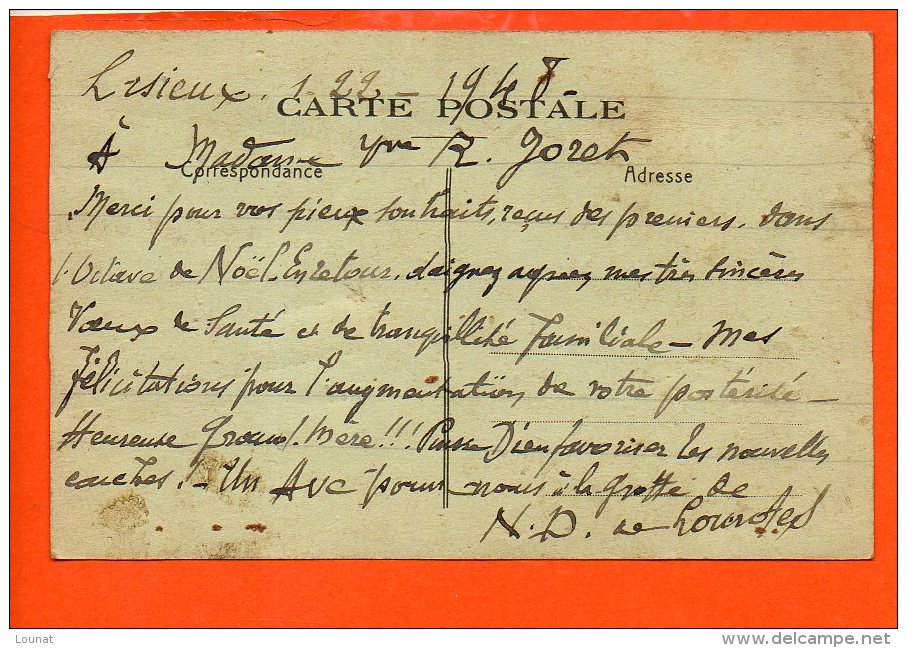 Lisieux. 1-22-1948-
CARTE POSTALE
À Madame Yve R. Joret
Correspondance
Adresse
Merci pour vos pieux souhaits, reçus des premiers, dans
l'Octave de Noël. En retour, daignez agréer, mes très sincères
Vœux de Santé et de tranquillité familiale - Mes
félicitations pour l'augmentation, de votre postérité -
Heureuse Grand'Mère!!! Puisse Dieu favoriser les nouvelles
couches! - Un Ave pour nous à la grotte de
N.D. de Lourdes
Lounat
www.delcampe.net